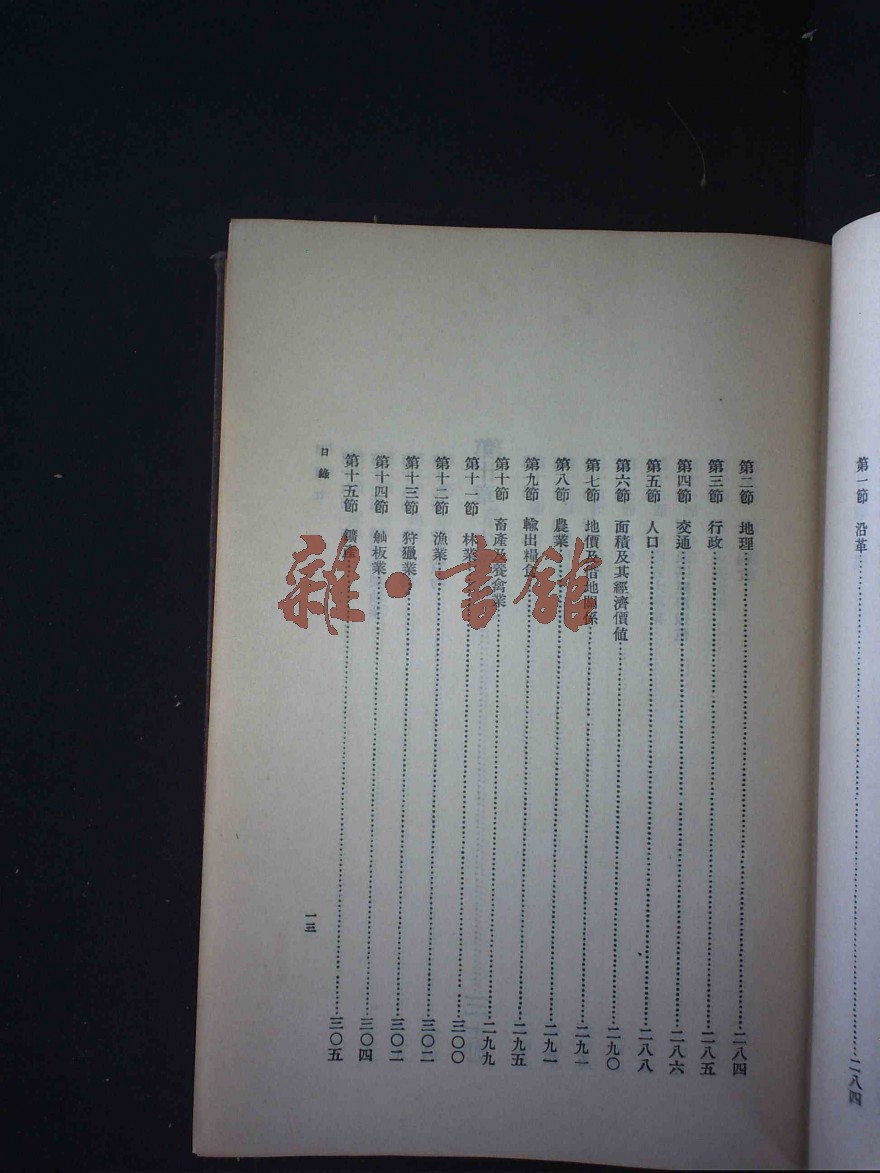 第一節 沿革 二八四
第二節 地理 二八四
第三節 行政 二八五
第四節 交通 二八六
第五節 人口 二八八
第六節 面積及其經濟價值 二九〇
第七節 地價及借地關係 二九一
第八節 農業 二九一
第九節 輸出糧食 二九五
第十節 畜產及養禽業 二九九
第十一節 林業 三〇〇
第十二節 漁業 三〇二
第十三節 狩獵業 三〇二
第十四節 舢板業 三〇四
第十五節 鑛產 三〇五
目錄
一三
雜·書館